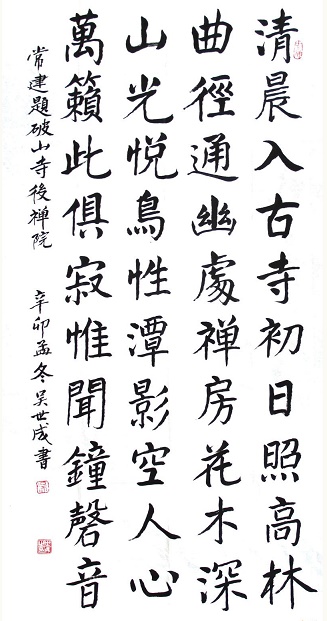 清晨入古寺初日照高林
曲徑通幽處禅房花木深
山光悅鳥性潭影空人心
萬籟此俱寂惟聞鐘磬音
常建題破山寺後禅院 辛卯孟冬吴世成書